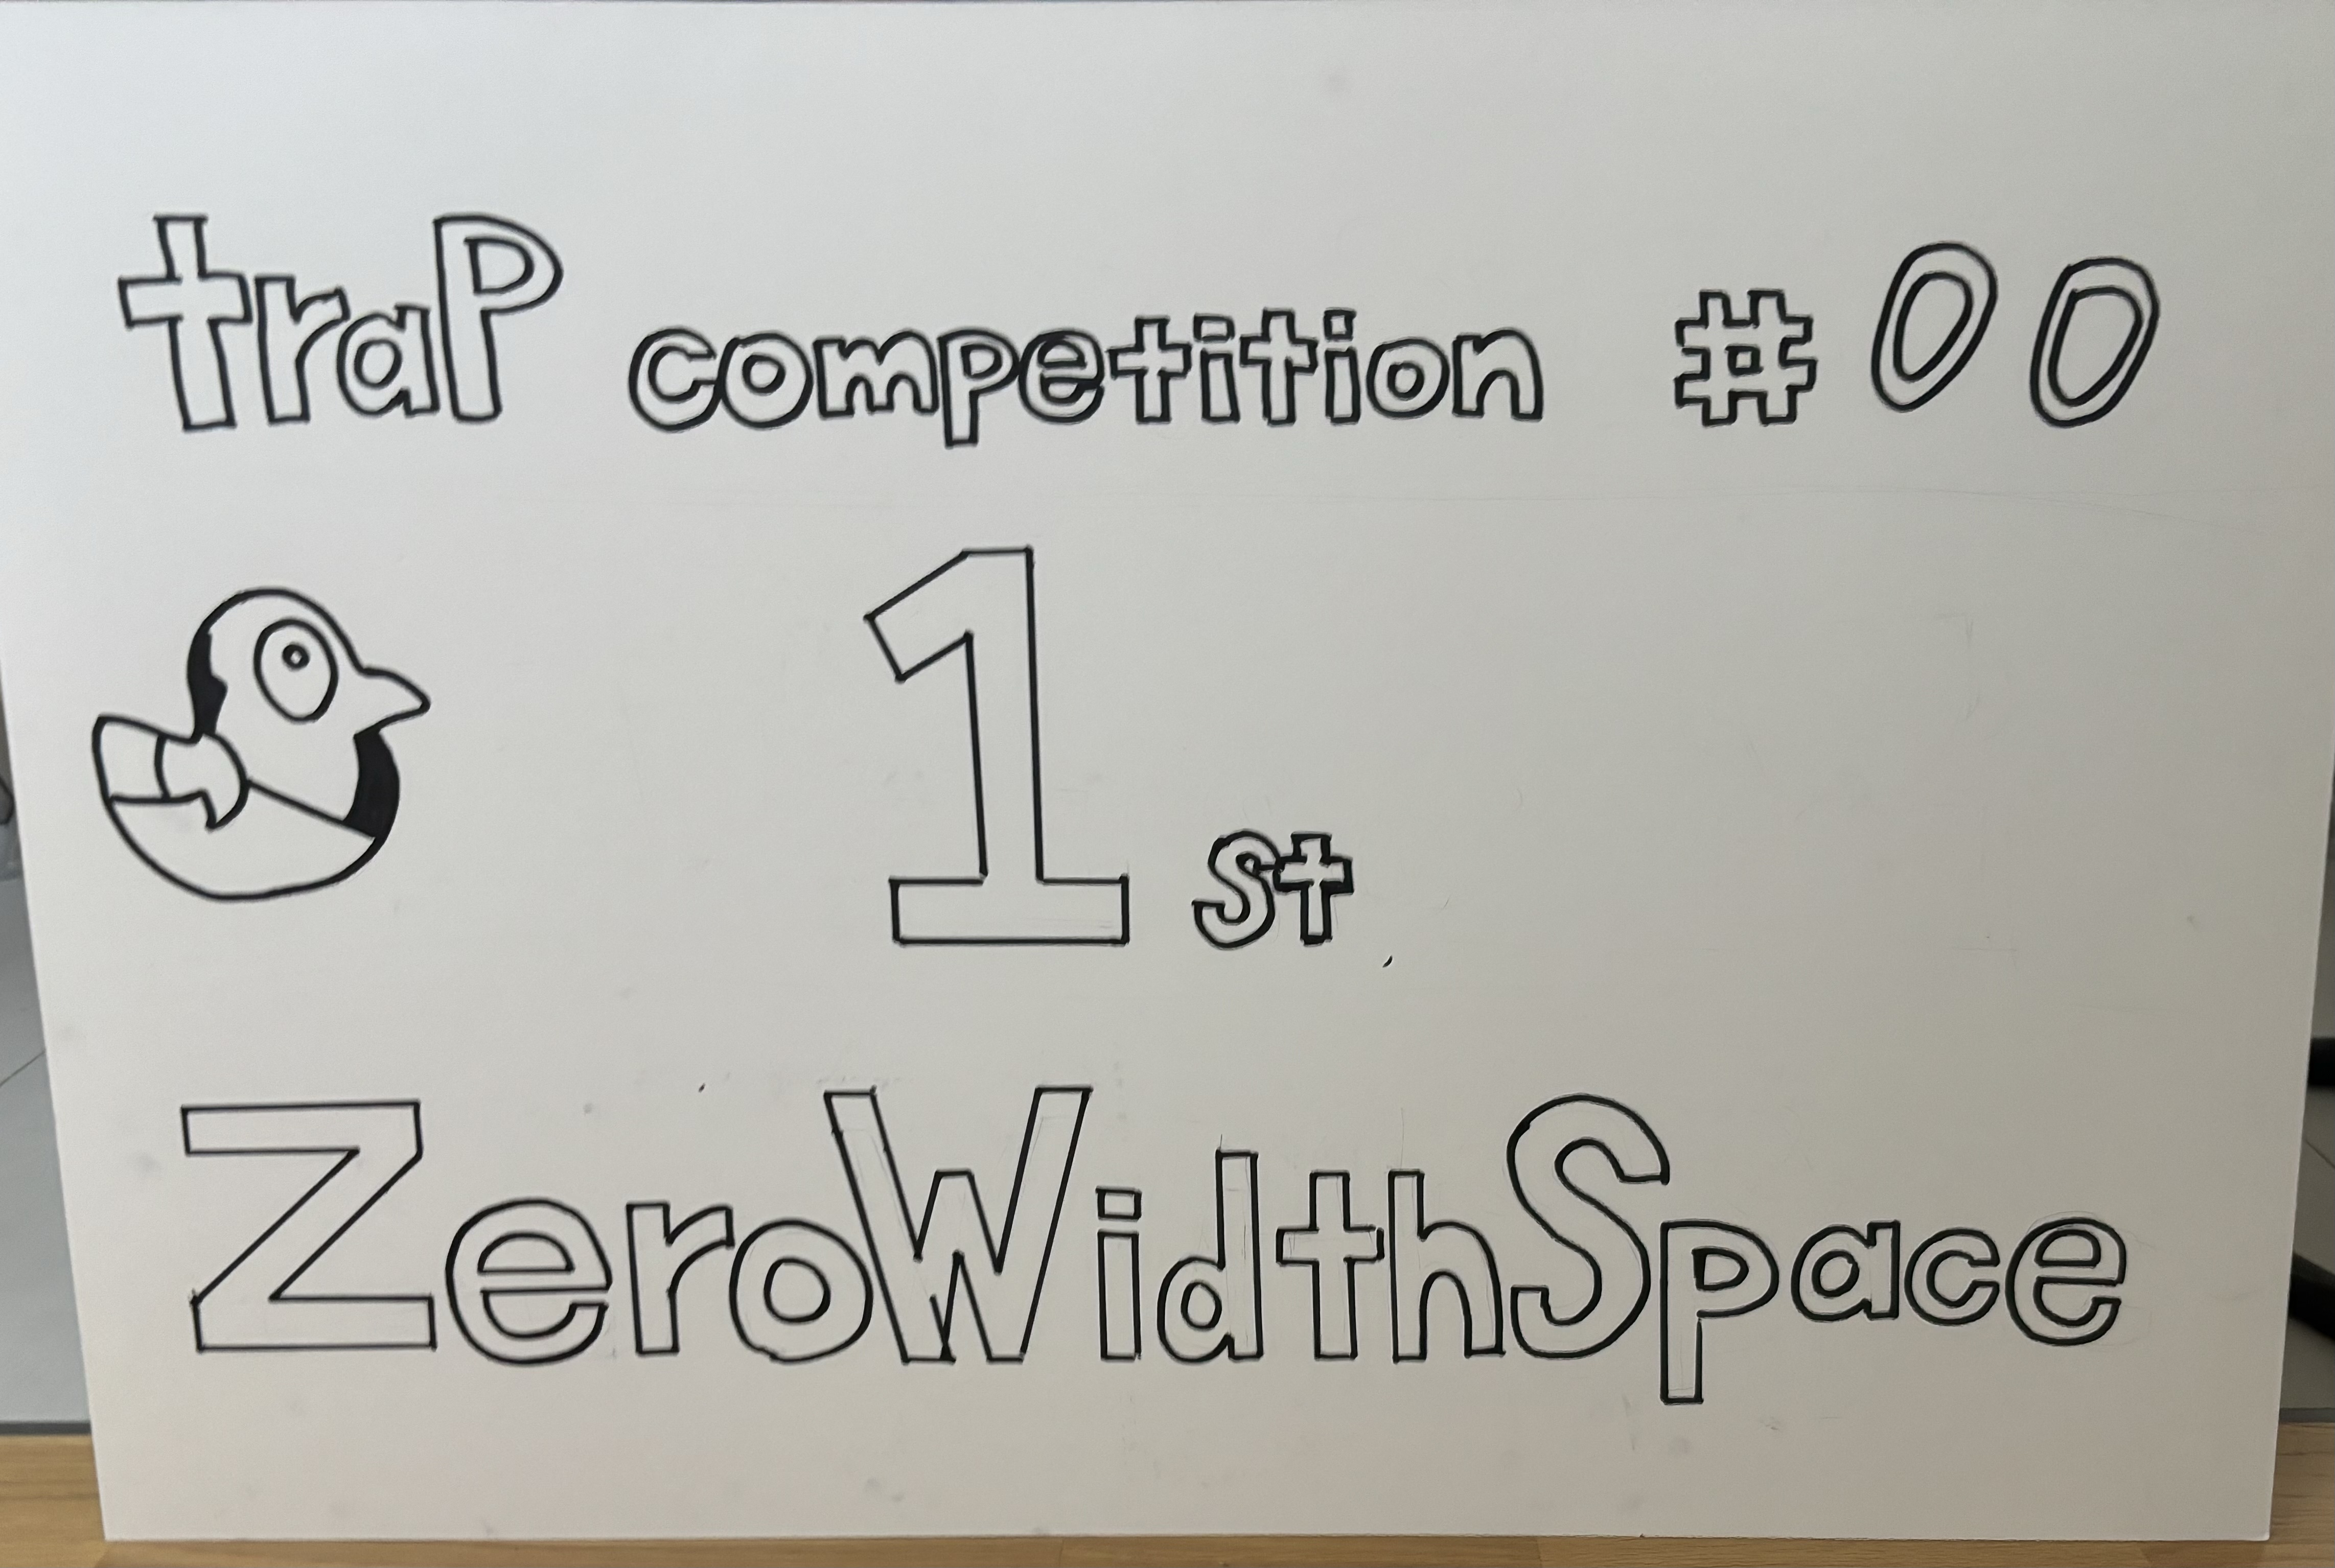 traP competition #00
1st
ZeroWidthSpace